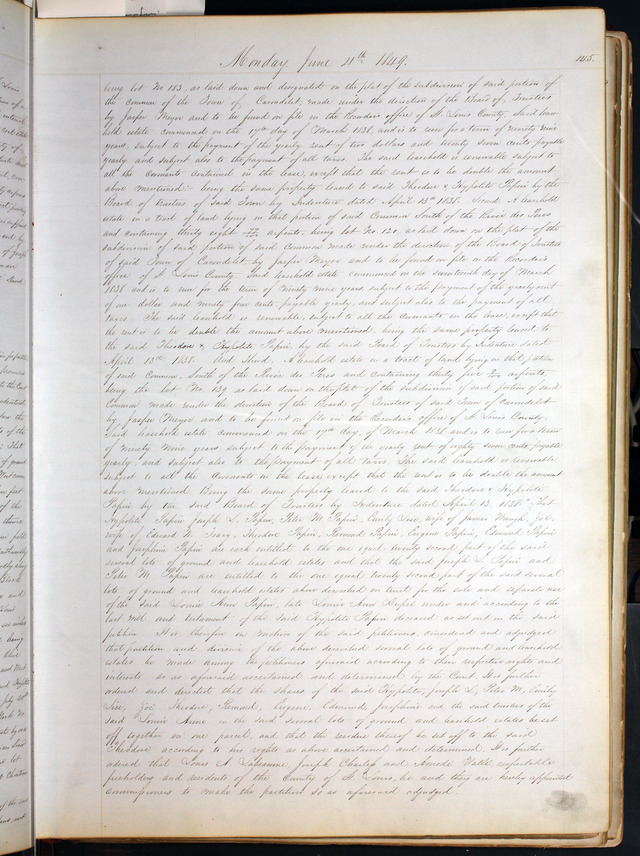 Monday June 11th 1849.
145.
being lot No 153, as laid down and designated on the plat of the subdivision of said portion of
the common of the Town of Carondelet, made under the direction of the Board of Trustees
by Jasper Meyer and to be found on file in the Recorders office of St. Louis County, Said lease
hold estate commenced on the 17th day of March 1838, and is to run for a term of ninety nine
years, subject to the payment of the yearly rent of two dollars and twenty seven cents payable
yearly and subject also to the payment of all taxes. The said leasehold is renewable subject to
all the covenants contained in the lease, except that the rent is to be double the amount
above mentioned:- being the same property leased to said Theodore & Hypolite Papin by the
Board of Trustees of said Town by Indenture dated April 13th 1838. Second. A leasehold
estate in a tract of land lying in that portion of said Common South of the River des Peres
and containing thirty eight arpents, being lot No 130, as laid down on the plat of the
subdivision of said portion of said Common made under the direction of the Board of Trustees
of said Town of Carondelet by Jasper Meyer and to be found on file in the Recorder's
office of St Louis County. Said leasehold estate commenced on the seventeenth day of March
1838 and is to run for the term of ninety nine years subject to the payment of the yearly rent
of one dollar and ninety five cents, payable yearly, and subject also to the payment of all
taxes. The said leasehold is renewable, subject to all the covenants in the lease, except that
the rent is to be double the amount above mentioned, being the same property leased to
the said Theodore & Hypolite Papin, by the said Board of Trustees by Indenture dated
April 13th 1838. And Third. A leasehold estate in a tract of land lying in that portion
of said Common, South of the River des Peres and containing thirty five arpents,
being the lot No 139 as laid down on the plat of the subdivision of said portion of said
Common made under the direction of the Board of Trustees of said Town of Carondelet
by Jasper Meyer and to be found on file in the Recorders office of St. Louis County.
Said leasehold estate commenced on the 17th day of March 1838 and is to run for a term
of ninety nine years subject to the payment of the yearly rent of eighty seven cents, payable
yearly, and subject also to the payment of all taxes. The said leasehold is renewable
subject to all the covenants in the lease, except that the rent is to be double the amount
above mentioned. Being the same property leased to the said Theodore & Hypolite
Papin by the said Board of Trustees by Indenture dated April 13. 1838. That
Hypolite Papin, Joseph L. Papin, Peter M. Papin, Emily Lee, wife of James Waugh, Zoe,
wife of Edward N. Tracy, Theodore Papin, Raimond Papin, Eugene Papin, Edmund Papin
and Josephine Papin are each entitled to the one equal twenty second part of the said
several lots of ground, and leasehold estates and that the said Joseph L. Papin and
Peter M. Papin are entitled to the one equal twenty second part of the said several
lots of ground and leasehold estates above described in trust for the sole and separate use
of the said Louise Ann Papin, late Louise Ann Dupré under and according to the
last will and testament of the said Hypolite Papin deceased as set out in the said
petition. It is therefore on motion of the said petitioners, considered and adjudged
that partition and division of the above described several lots of ground and leasehold
estates be made among the petitioners aforesaid according to their respective rights and
interests so as aforesaid ascertained and determined by the Court. It is further
ordered and directed that the shares of the said Hypolite, Joseph L, Peter M, Emily
Lee, Zoé, Theodore, Raimond, Eugene, Edmund, Josephine and the said trustees of the
said Louise Anne in the said several lots of ground and leasehold estates be set
off together in one parcel, and that the residue thereof be set off to the said
Theodore according to his rights as above ascertained and determined. It is further
ordered that Louis A Labeaume, Joseph Charless and Amedee Vallé, respectable
freeholders and residents of the County of St Louis, be and they are hereby appointed
commissioners to make the partition so as aforesaid adjudged.